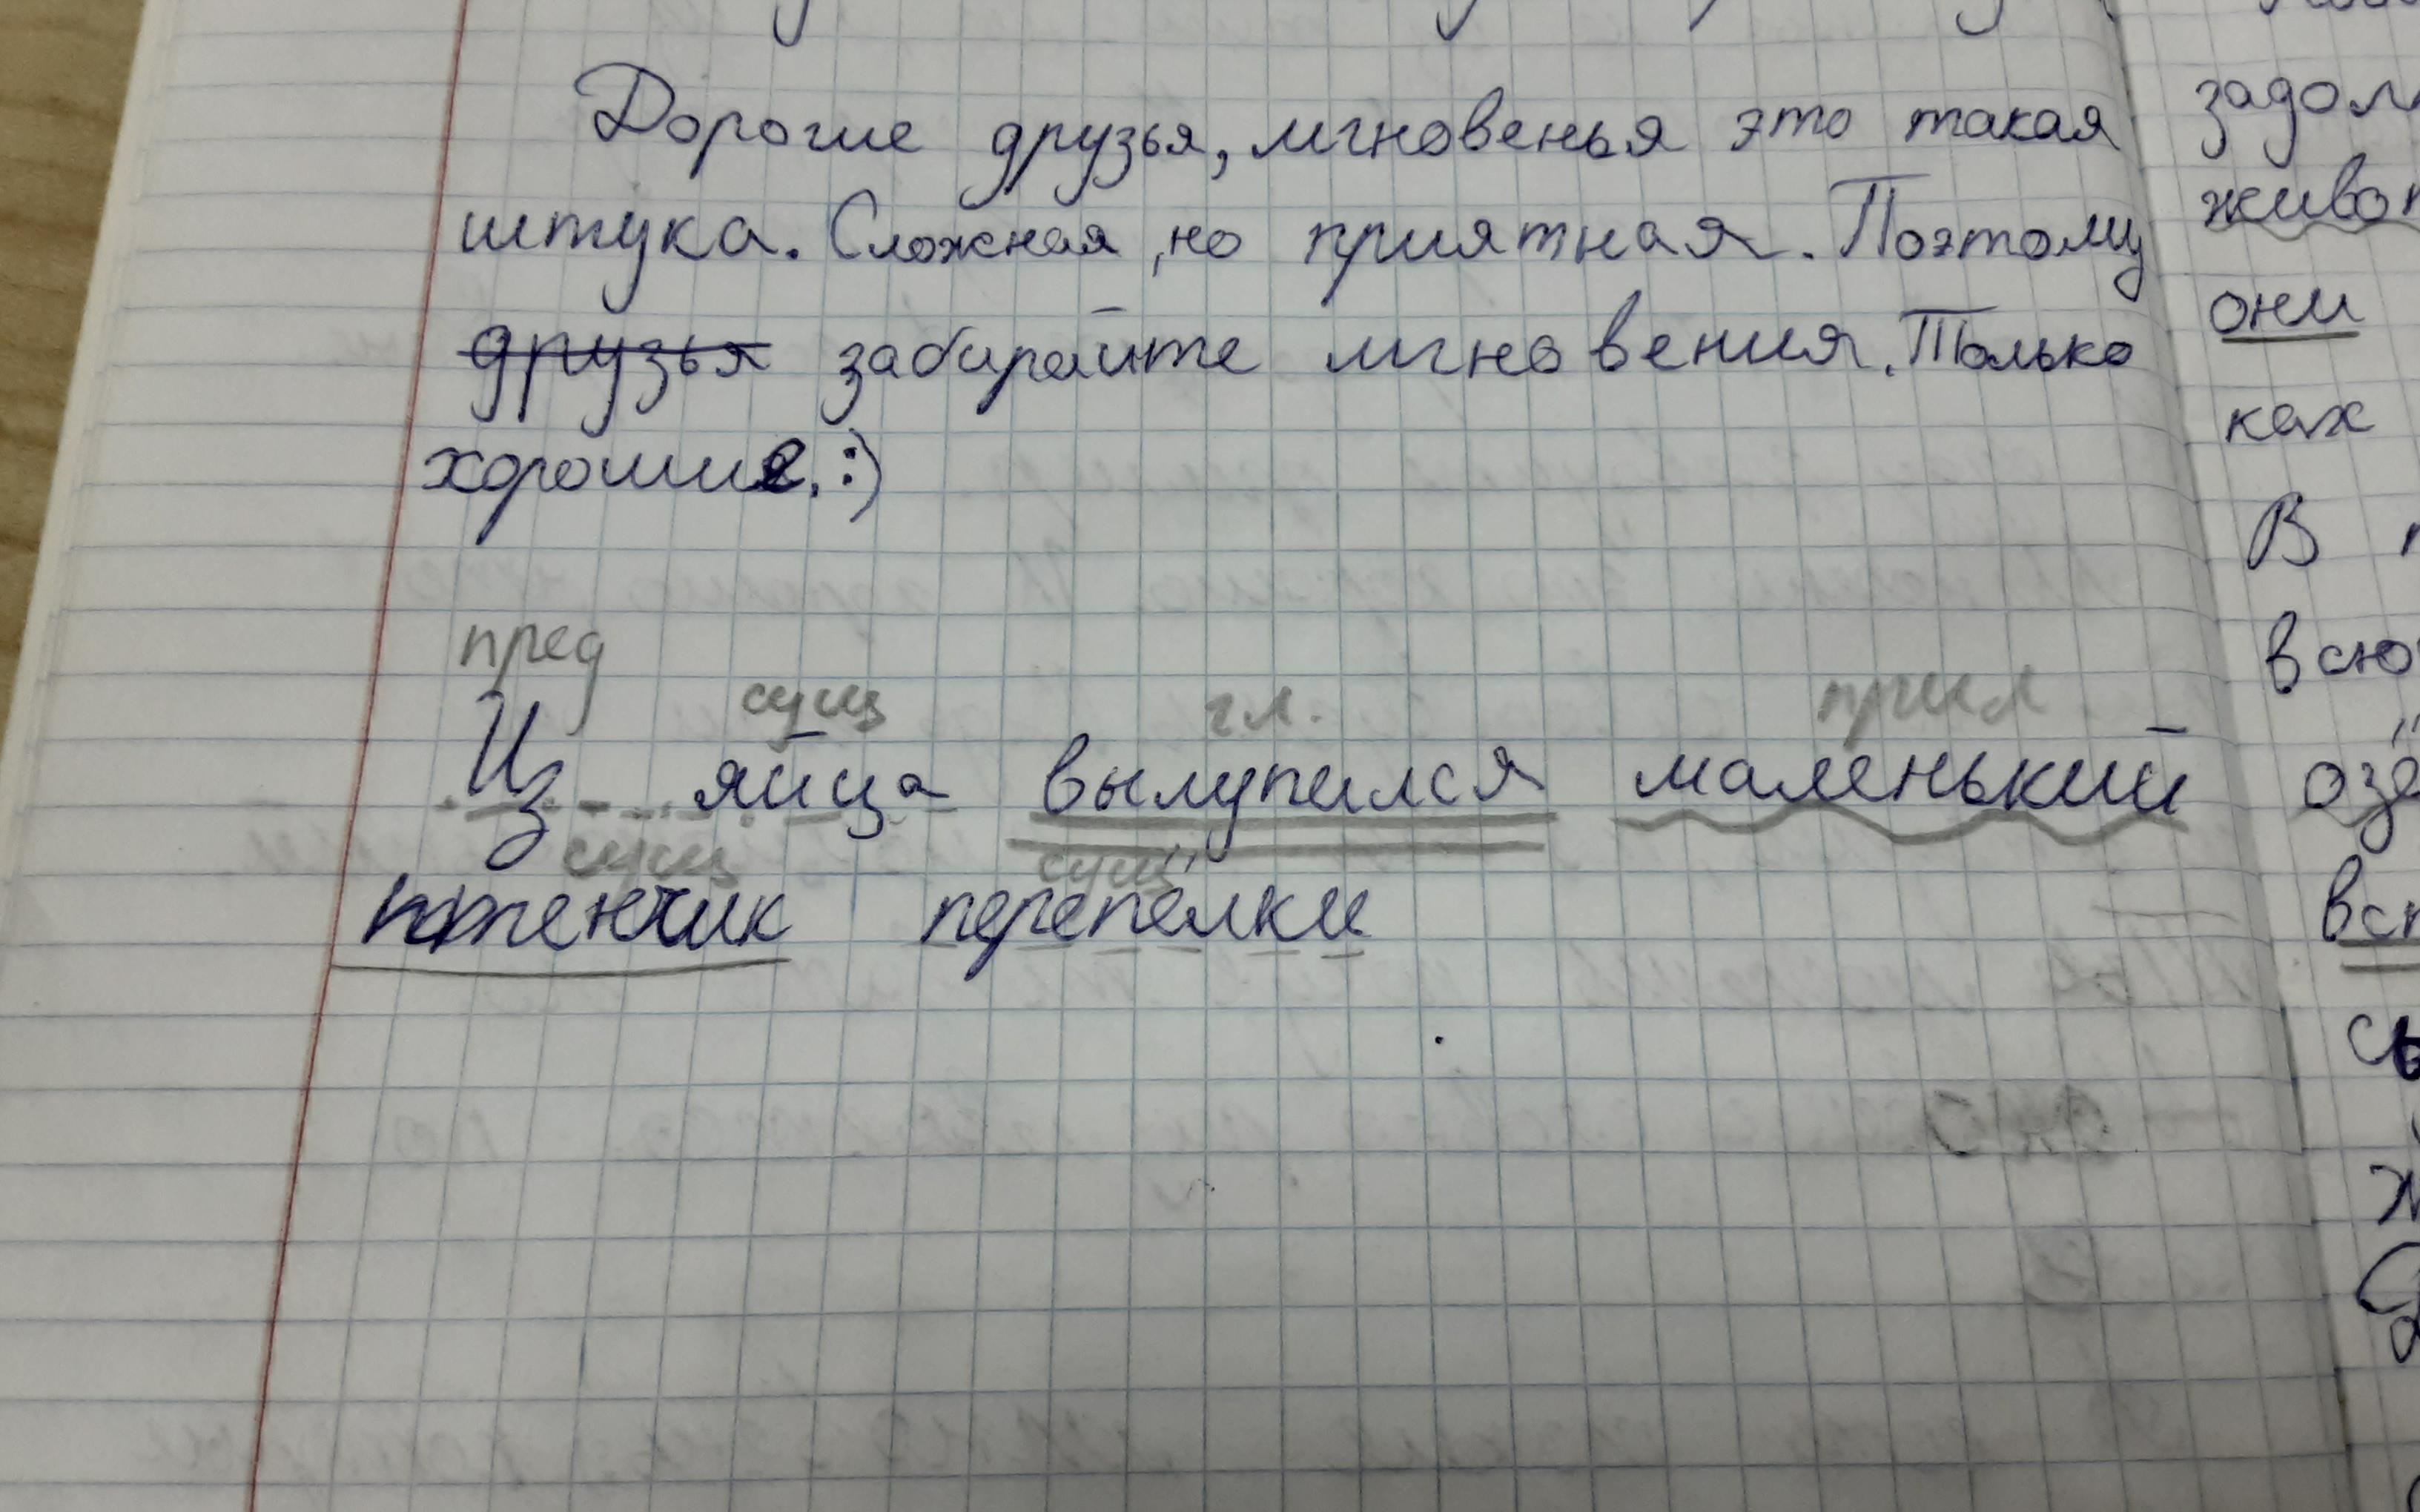 Дорогие друзья, мгновенья это такая
штука. Сложная, но приятная. Поэтому
друзья забирайте мгновения. Только
хорошие. :)
пред
сущ гл. прил
Из яйца вылупился маленький
сущ сущ
птенчик перепёлки
они
ках
В